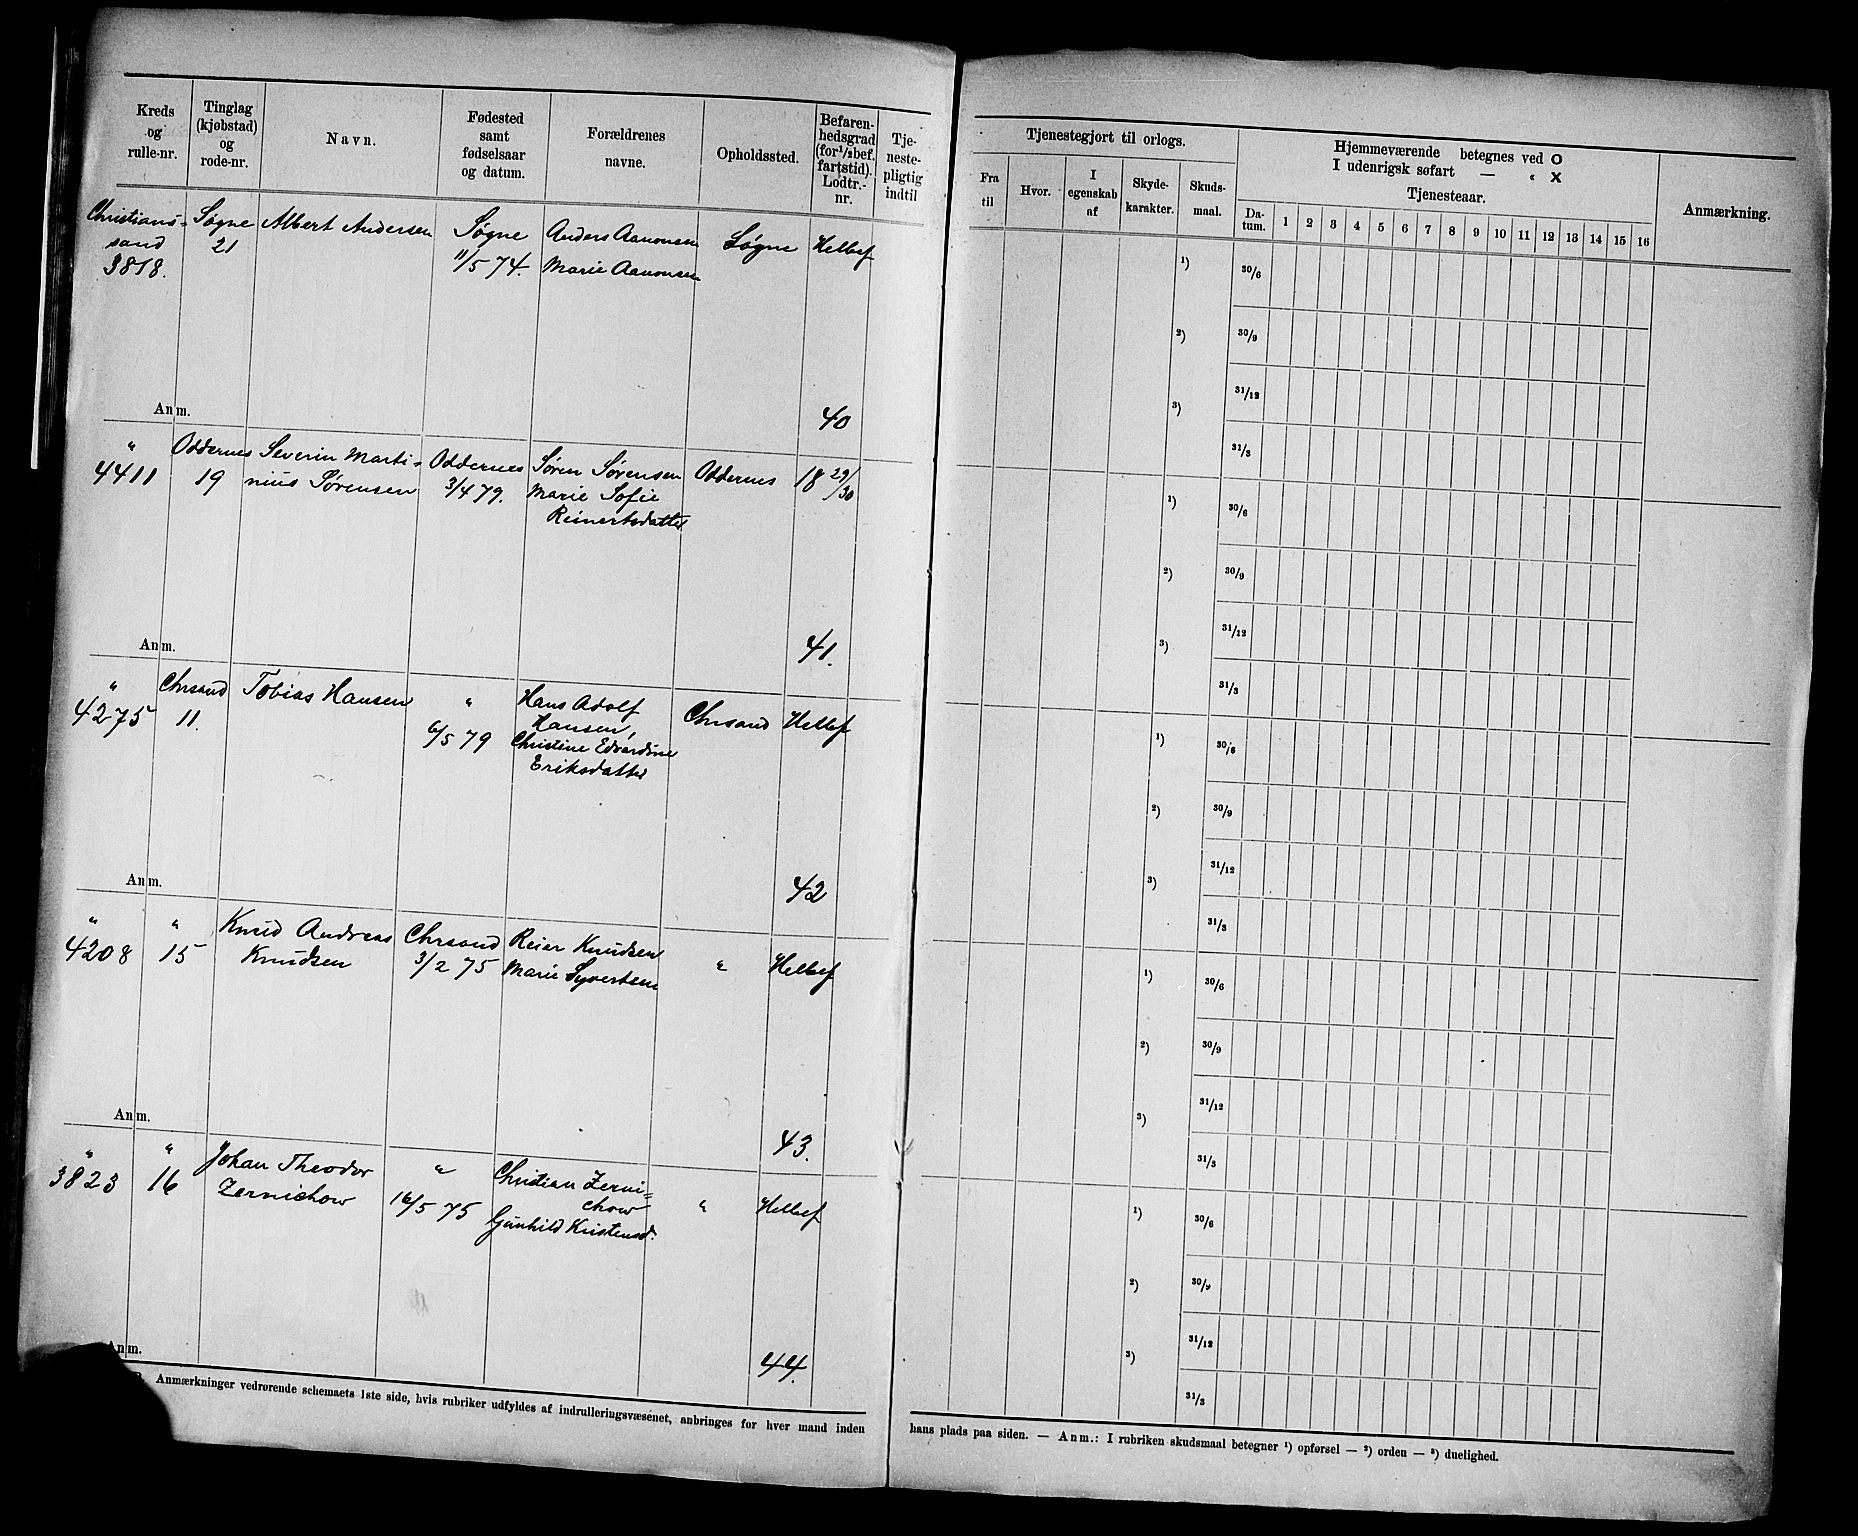 Kreds og rulle-nr.
Tinglag (kjøbstad) og rode-nr.
Navn.
Fødested samt fødselsaar og datum.
Forældrenes navne.
Opholdssted.
Befaren-hedsgrad (for ½bef. fartstid). Lodtr.-nr.
Tje-neste-pligtig indtil
Tjenestegjort til orlogs.
Fra til
Hvor.
I egenskab af
Skyde-karakter.
Skuds-maal.
Hjemmeværende betegnes ved O
I udenrigsk søfart — „ X
Tjenesteaar.
Da-tum. 1 2 3 4 5 6 7 8 9 10 11 12 13 14 15 16
Anmærkning.
Christians- Søgne Albert Andersen Søgne Anders Aanonsen Søgne Helbef
sand 21 11/5 74. Marie Aanonsen
3818.
1) 30/6
2) 30/9
3) 31/12
31/3
Anm. 40
" Oddernes Severin Marti- Oddernes Søren Sørensen Oddernes 18 29/30
4411 19 nius Sørensen 3/4 79. Marie Sofie
Reinertsdatter
1) 30/6
2) 30/9
3) 31/12
31/3
Anm. 41.
" Chrsand Tobias Hansen " Hans Adolf Chrsand Helbef
4275 11. 6/5 79 Hansen,
Christine Edvardine
Eriksdatter
1) 30/6
2) 30/9
3) 31/12
31/3
Anm. 42
" " Knud Andreas Chrsand Reier Knudsen " Helbef
4208 15 Knudsen 3/2 75 Marie Syvertsen
1) 30/6
2) 30/9
3) 31/12
31/3
Anm. 43.
" " Johan Theodor " Christian Zerni= " Helbef
3823 16 Zernichow 16/5 75 chow
Gunhild Kristensd.
1) 30/6
2) 30/9
3) 31/12
31/3
Anm. 44.
Anmærkninger vedrørende schemaets 1ste side, hvis rubriker udfyldes af indrulleringsvæsenet, anbringes for hver mand inden
hans plads paa siden. — Anm.: I rubriken skudsmaal betegner 1) opførsel — 2) orden — 3) duelighed.